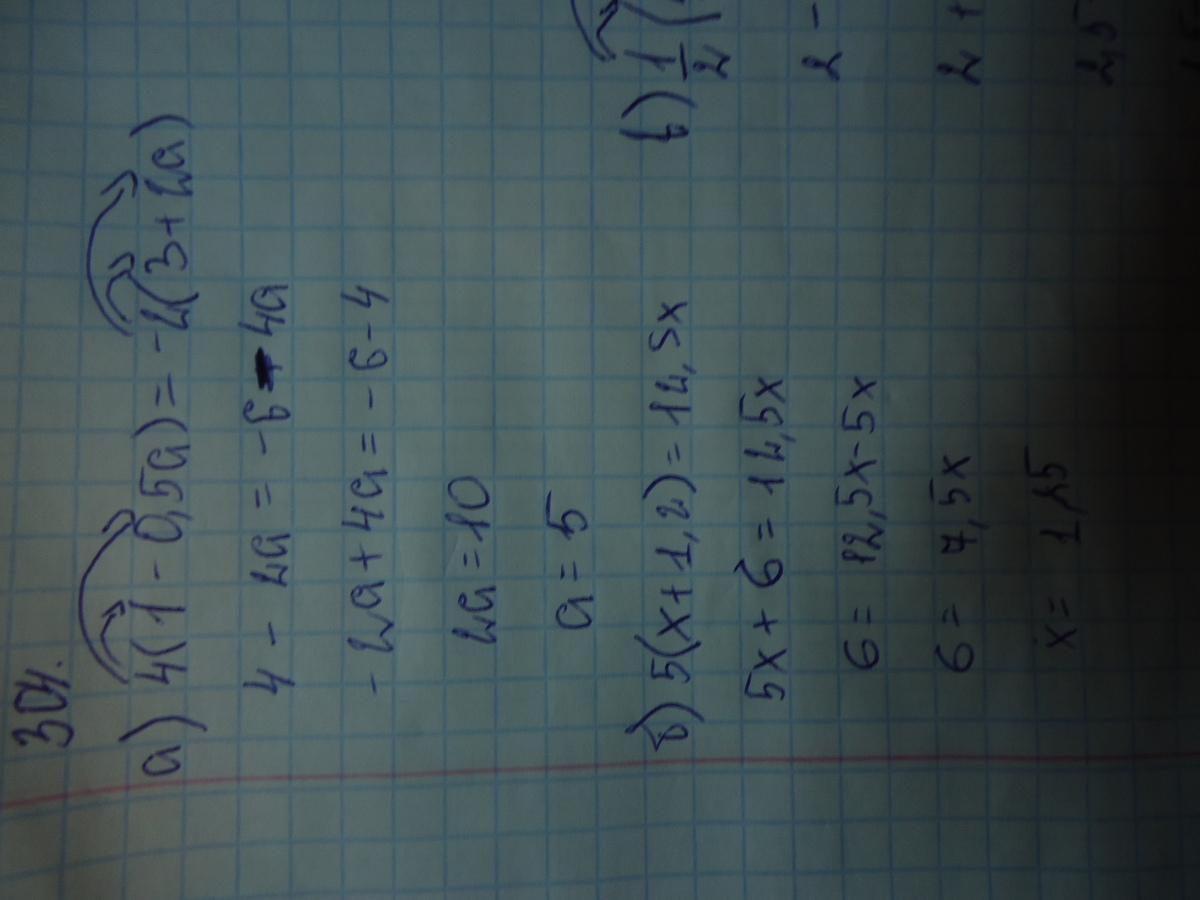 304.
а) 4(1 - 0,5a) = -2(3 + 2a)
4 - 2a = -6 - 4a
- 2a + 4a = - 6 - 4
2a = 10
a = 5
б) 5(x + 1,2) = 12,5x
5x + 6 = 12,5x
6 = 12,5x - 5x
6 = 7,5x
x = 1,25
в) 1/2 (
2 -
2 +
2,5